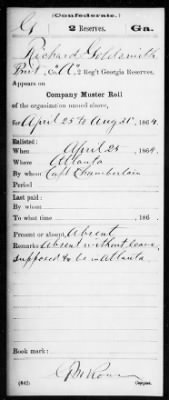 (Confederate.)
G 2 Reserves. Ga.
Richard Goldsmith
Pvt, Co. A, 2 Reg't Georgia Reserves.
Appears on
Company Muster Roll
of the organization named above,
for April 25 to Aug 31, 1864.
Enlisted:
When April 25, 1864.
Where Atlanta
By whom Capt Chamberlain
Period
Last paid:
By whom
To what time , 186 .
Present or absent, Absent
Remarks: Absent without leave
supposed to be in Atlanta
Book mark:
(642) Copyist.